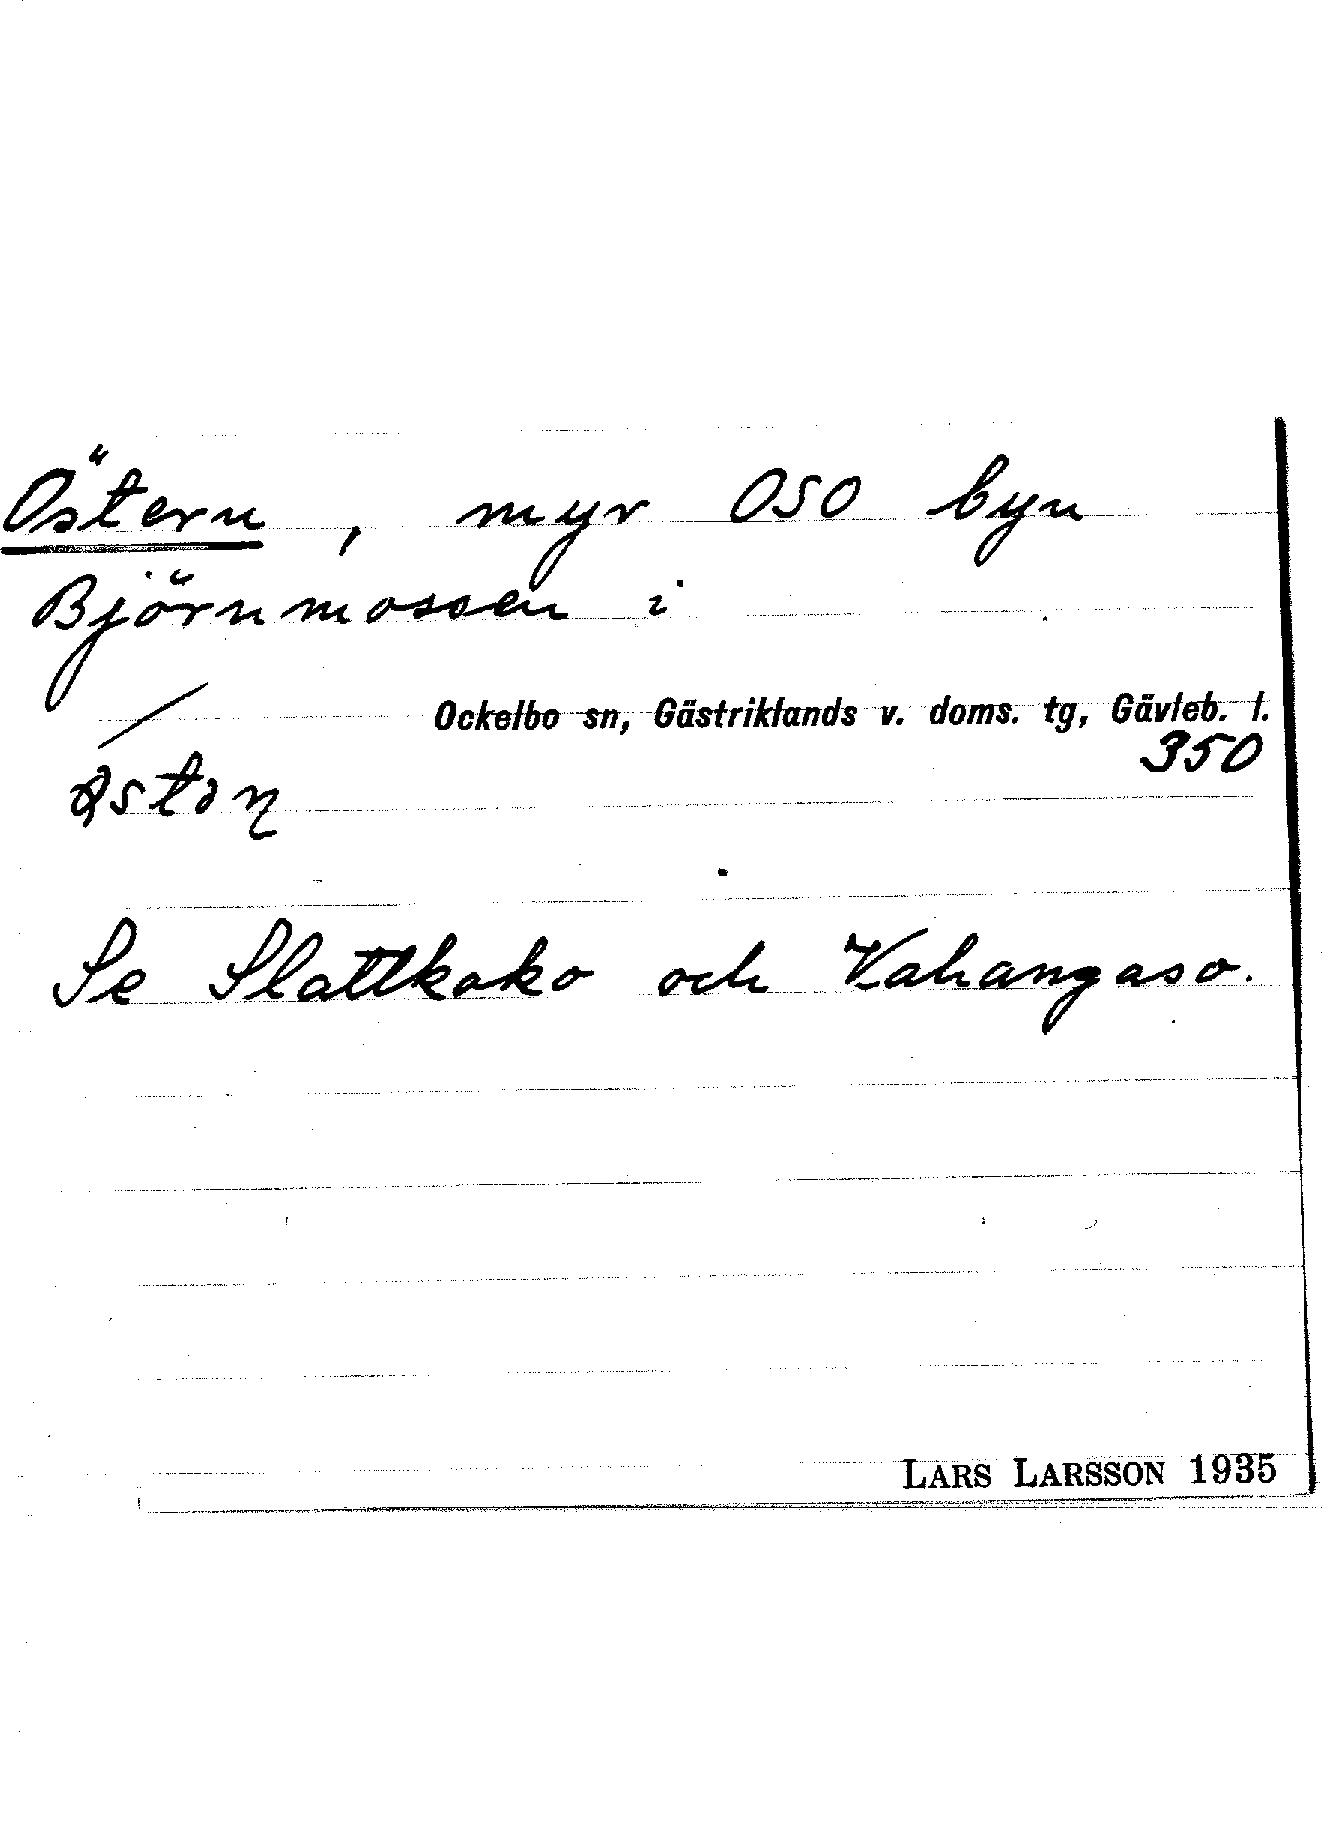 Östern, myr OSO byn
Björnmossen i
Ockelbo sn, Gästriklands v. doms. tg, Gävleb. l.
350
Se Slattkoko och Vahangaso.
LARS LARSSON 1935